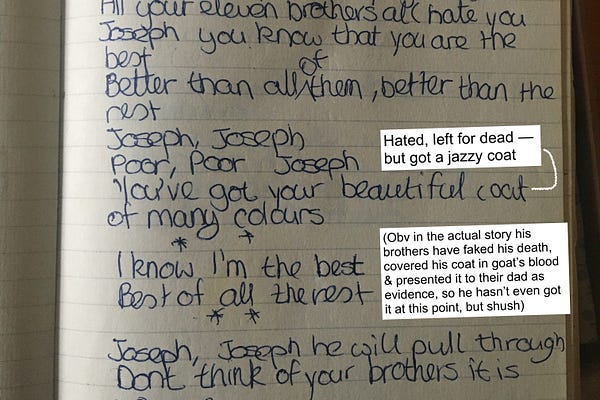 All your eleven brothers all hate you
Joseph you know that you are the
best
Better than all of them, better than the
rest
Joseph, Joseph
Poor, Poor Joseph
You've got your beautiful coat
of many colours
* *
I know I'm the best
Best of all the rest
* *
Joseph, Joseph he will pull through
Dont think of your brothers it is
Hated, left for dead —
but got a jazzy coat
(Obv in the actual story his
brothers have faked his death,
covered his coat in goat's blood
& presented it to their dad as
evidence, so he hasn't even got
it at this point, but shush)